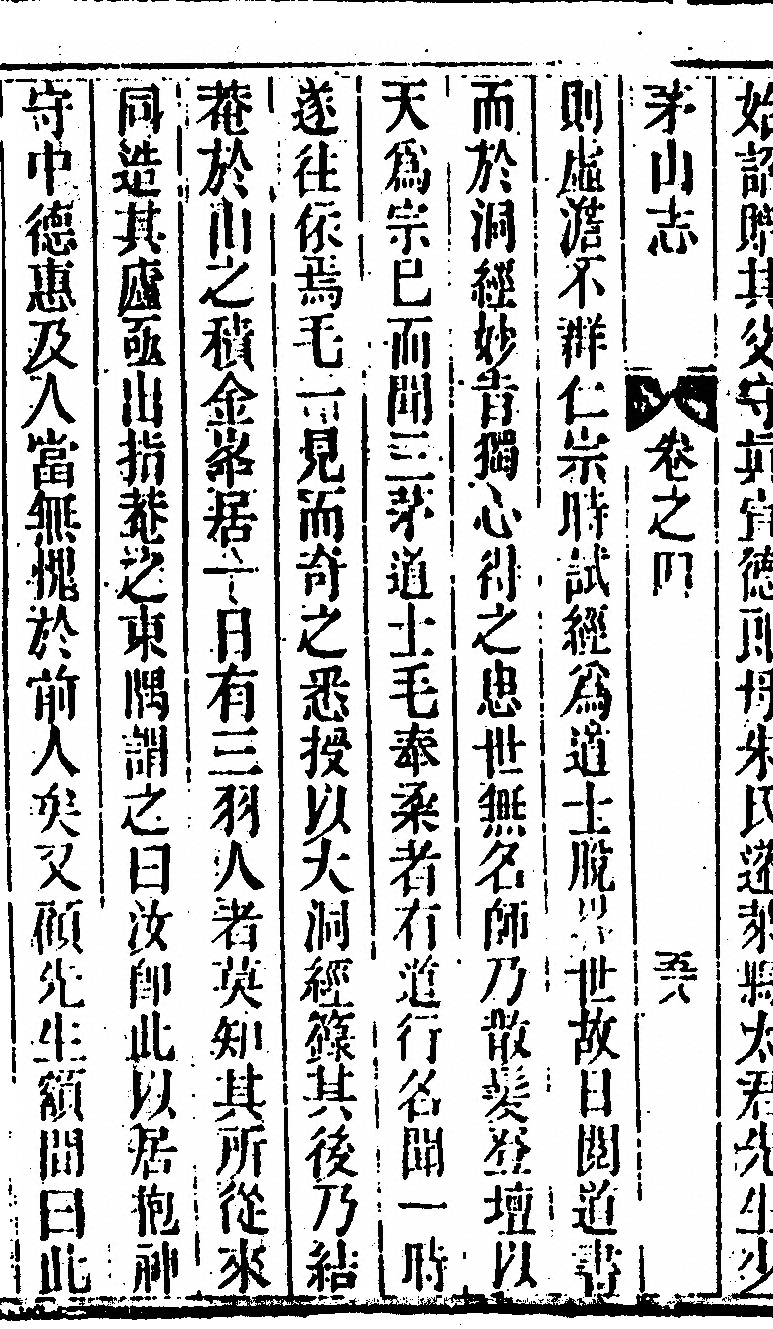 始詔贈其父守貞宣德郎母朱氏蓬萊縣太君先生少
茅山志 卷之四 五六
則虛澹不群仁宗時試經爲道士脫畧世故日閱道書
而於洞經妙音獨心得之患世無名師乃散髮登壇以
天爲宗已而聞三茅道士毛奉柔者有道行名聞一時
遂往依焉毛一見而奇之悉授以大洞經籙其後乃結
菴於山之積金峯居一日有三羽人者莫知其所從來
同造其廬亟出指菴之東隅謂之曰汝即此以居抱神
守中德惠及人當無愧於前人矣又顧先生額間曰此